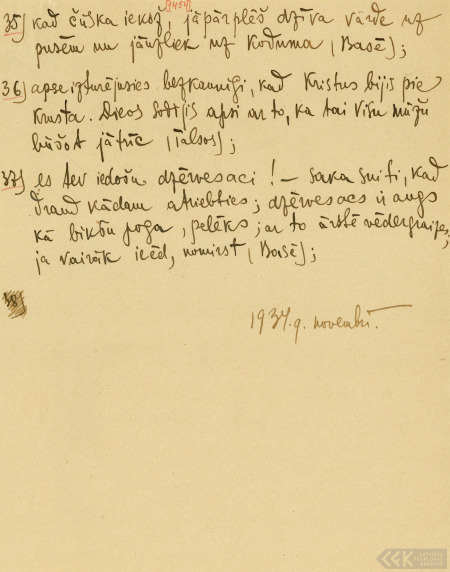 4541
35) kad čūska iekož, jāpārplēš dzīva varde uz
pusēm un jāuzliek uz koduma (Basē);
36) apse izturējusies bezkaunīgi, kad Kristus bijis pie
krusta. Dievs sodījis apsi ar to, ka tai visu mūžu
būšot jātrīc (Talsos);
37) es tev iedošu dzērvesaci! – saka suiti, kad
draud kādam atriebties; dzērvesacs ir augs
kā bikšu poga, pelēks; ar to ārstē vēdergraizes,
ja vairāk ieēd, nomirst (Basē);
38)
1937. g. novembrī.
LATVIEŠU
FOLKLORAS
KRĀTUVE